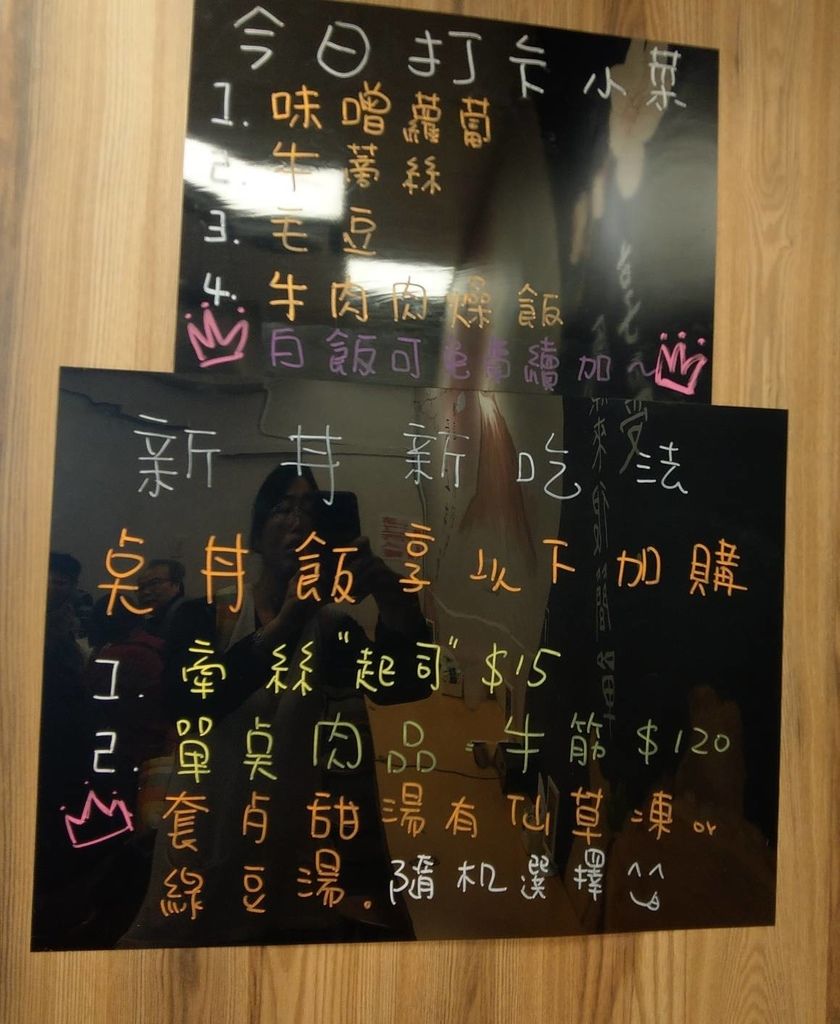 今日打卡小菜
1. 味噌蘿蔔
2. 牛蒡絲
3. 毛豆
4. 牛肉肉燥飯
白飯可免費續加~
新丼新吃法
桌丼飯享以下加購
1. 牽絲"起司"$15
2. 單桌肉品-牛筋$120
套卢甜湯有仙草凍or
綠豆湯。隨机選擇^^